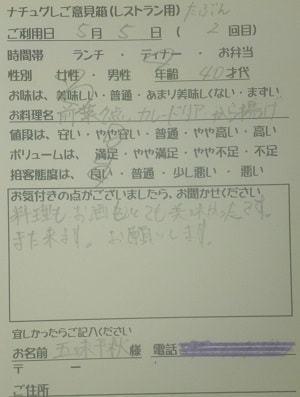 ナチュグレご意見箱(レストラン用)
ご利用日 5月 5日 ( 2 回目)
時間帯 ランチ・ディナー・お弁当
性別 女性・男性 年齢 40才代
お味は、美味しい・普通・あまり美味しくない・まずい
お料理名 前菜 カレードリア から揚げ
値段は、安い・やや安い・普通・やや高い・高い
ボリュームは、満足・やや満足・普通・やや不足・不足
接客態度は、良い・普通・少し悪い・悪い
お気付きの点がございましたら、お聞かせください
料理もお酒もとても美味かったです。
また来ます。お願いします。
宜しかったらご記入ください
お名前 五味千秋 様 電話
〒 ー
ご住所